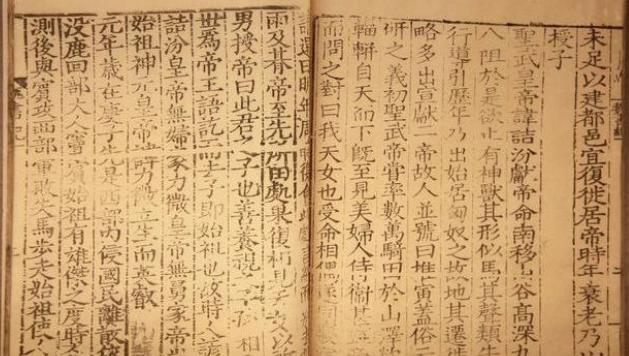 未足以建都邑宜復徙居帝時年衰老乃
授子
聖武皇帝諱詰汾獻帝命南移山谷高深九
八阻於是欲止有神獸其形似馬其聲類
行導引歷年乃出始居匈奴之故地其遷
略多出宣獻二帝故人並號曰推寅蓋俗
研之義初聖武帝嘗率數萬騎田於山澤
輜軿自天而下旣至見美婦人侍衛甚
而問之對曰我天女也受命相偶
請還曰明年周時復
雨及朞帝至先所田處果復相見天女以所
男授帝曰此君之子也善養視之子相
世爲帝王語訖而去子即始祖也故時人諺
詰汾皇帝無婦家力微皇帝無舅家帝
始祖神元皇帝諱力微立生而英叡
元年歲在庚子先是西部內侵國民離散
沒鹿回部大人竇賓始祖有雄傑之度時人
測後與賓攻西部軍敗失馬步走始祖使人